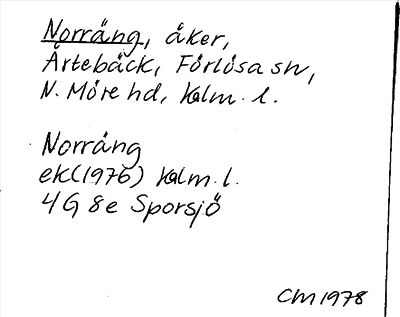 Norräng, åker,
Ärtebäck, Förlösa sn,
N. Möre hd, Kalm. l.
Norräng
ek(1976) Kalm. l.
4G 8e Sporsjö
CM 1978